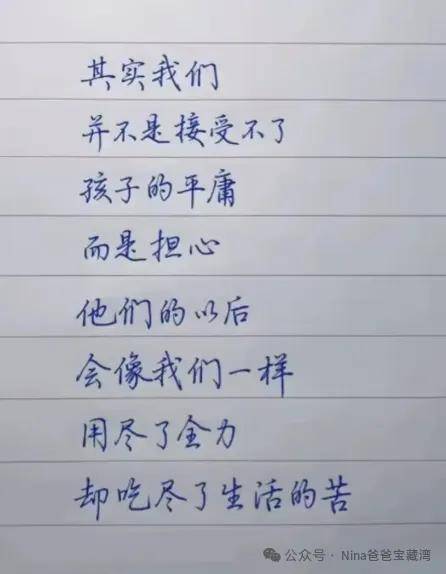 其实我们
并不是接受不了
孩子的平庸
而是担心
他们的以后
会像我们一样
用尽了全力
却吃尽了生活的苦
公众号· Nina爸爸宝藏湾